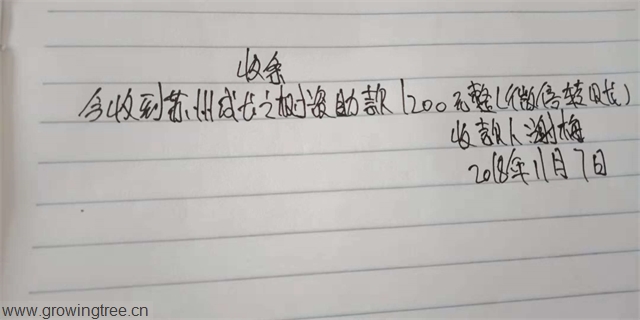 收条
今收到苏州成长之树资助款1200元整(微信转账)
收款人谢梅
2018年11月7日
www.growingtree.cn